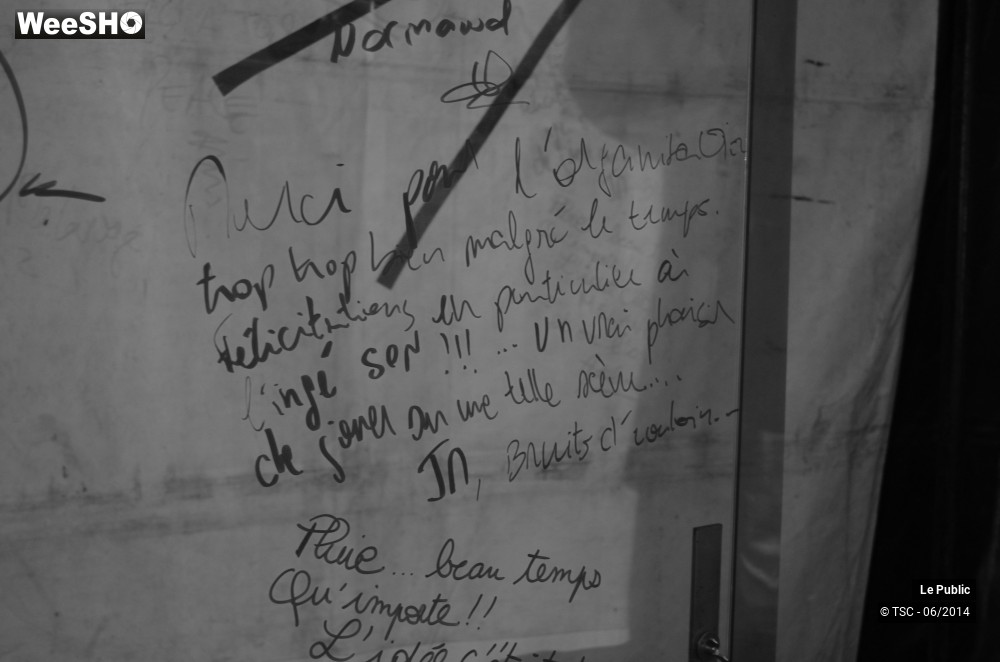 WeeSHO
Normand
Merci pour l'organisation
trop trop bien malgré le temps.
Félicitations en particulier à
l'ingé son !!! ... un vrai plaisir
de jouer sur une telle scène....
JN, Bruits d'couloir...
Pluie... beau temps
Qu'importe !!
L'idée c'était
Le Public
© TSC - 06/2014